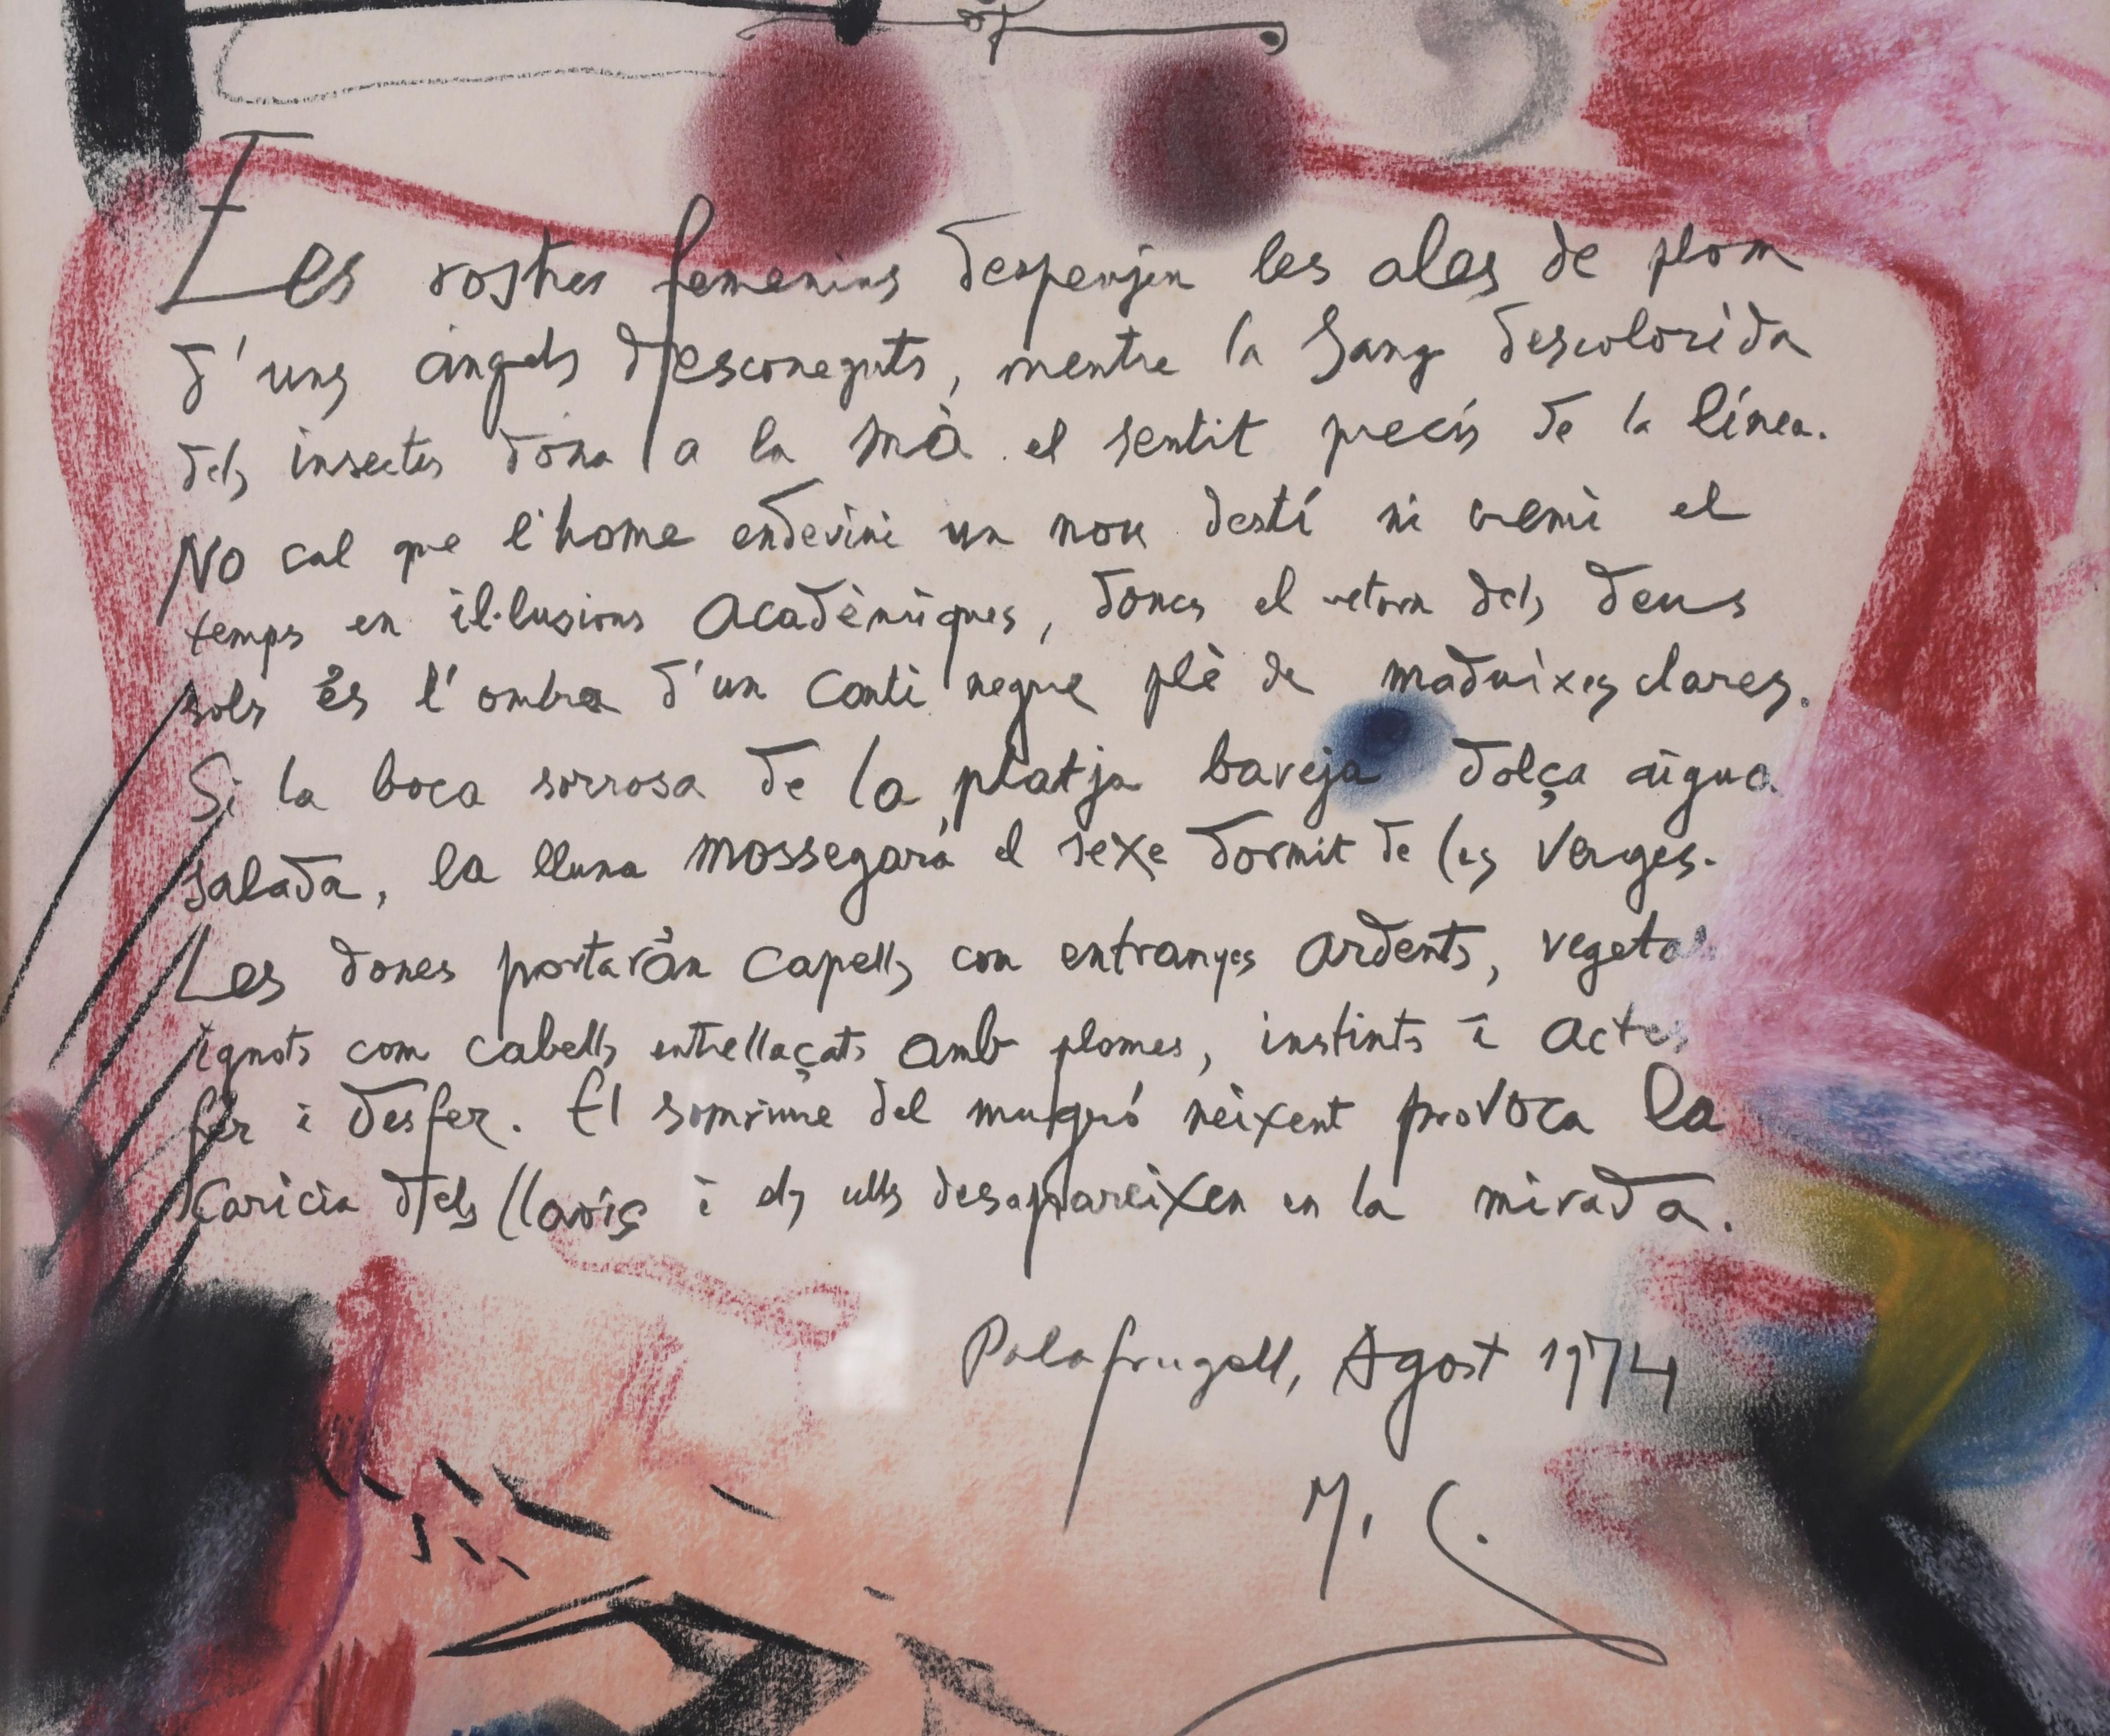 Les rostres femenins despenjen les ales de plom
d'uns àngels desconeguts, mentre la sang descolorida
dels insectes dona a la mà el sentit precís de la línea.
No cal que l'home endevini un nou destí ni cremi el
temps en il·lusions acadèmiques, doncs el retorn dels deus
sols és l'ombra d'un cantì negre plè de maduixes clares.
Si la boca sorrosa de la platja baveja dolça aigua
salada, la lluna mossegarà el sexe dormit de les verges.
Les dones portaràn capells com entranyes ardents, vegetals
ignots com cabells entrellaçats amb plomes, instints i actes
fer i desfer. El somriure del mugró neixent provoca la
caricia dels llavis i els ulls desapareixen en la mirada.
Palafrugell, Agost 1974
M. C.